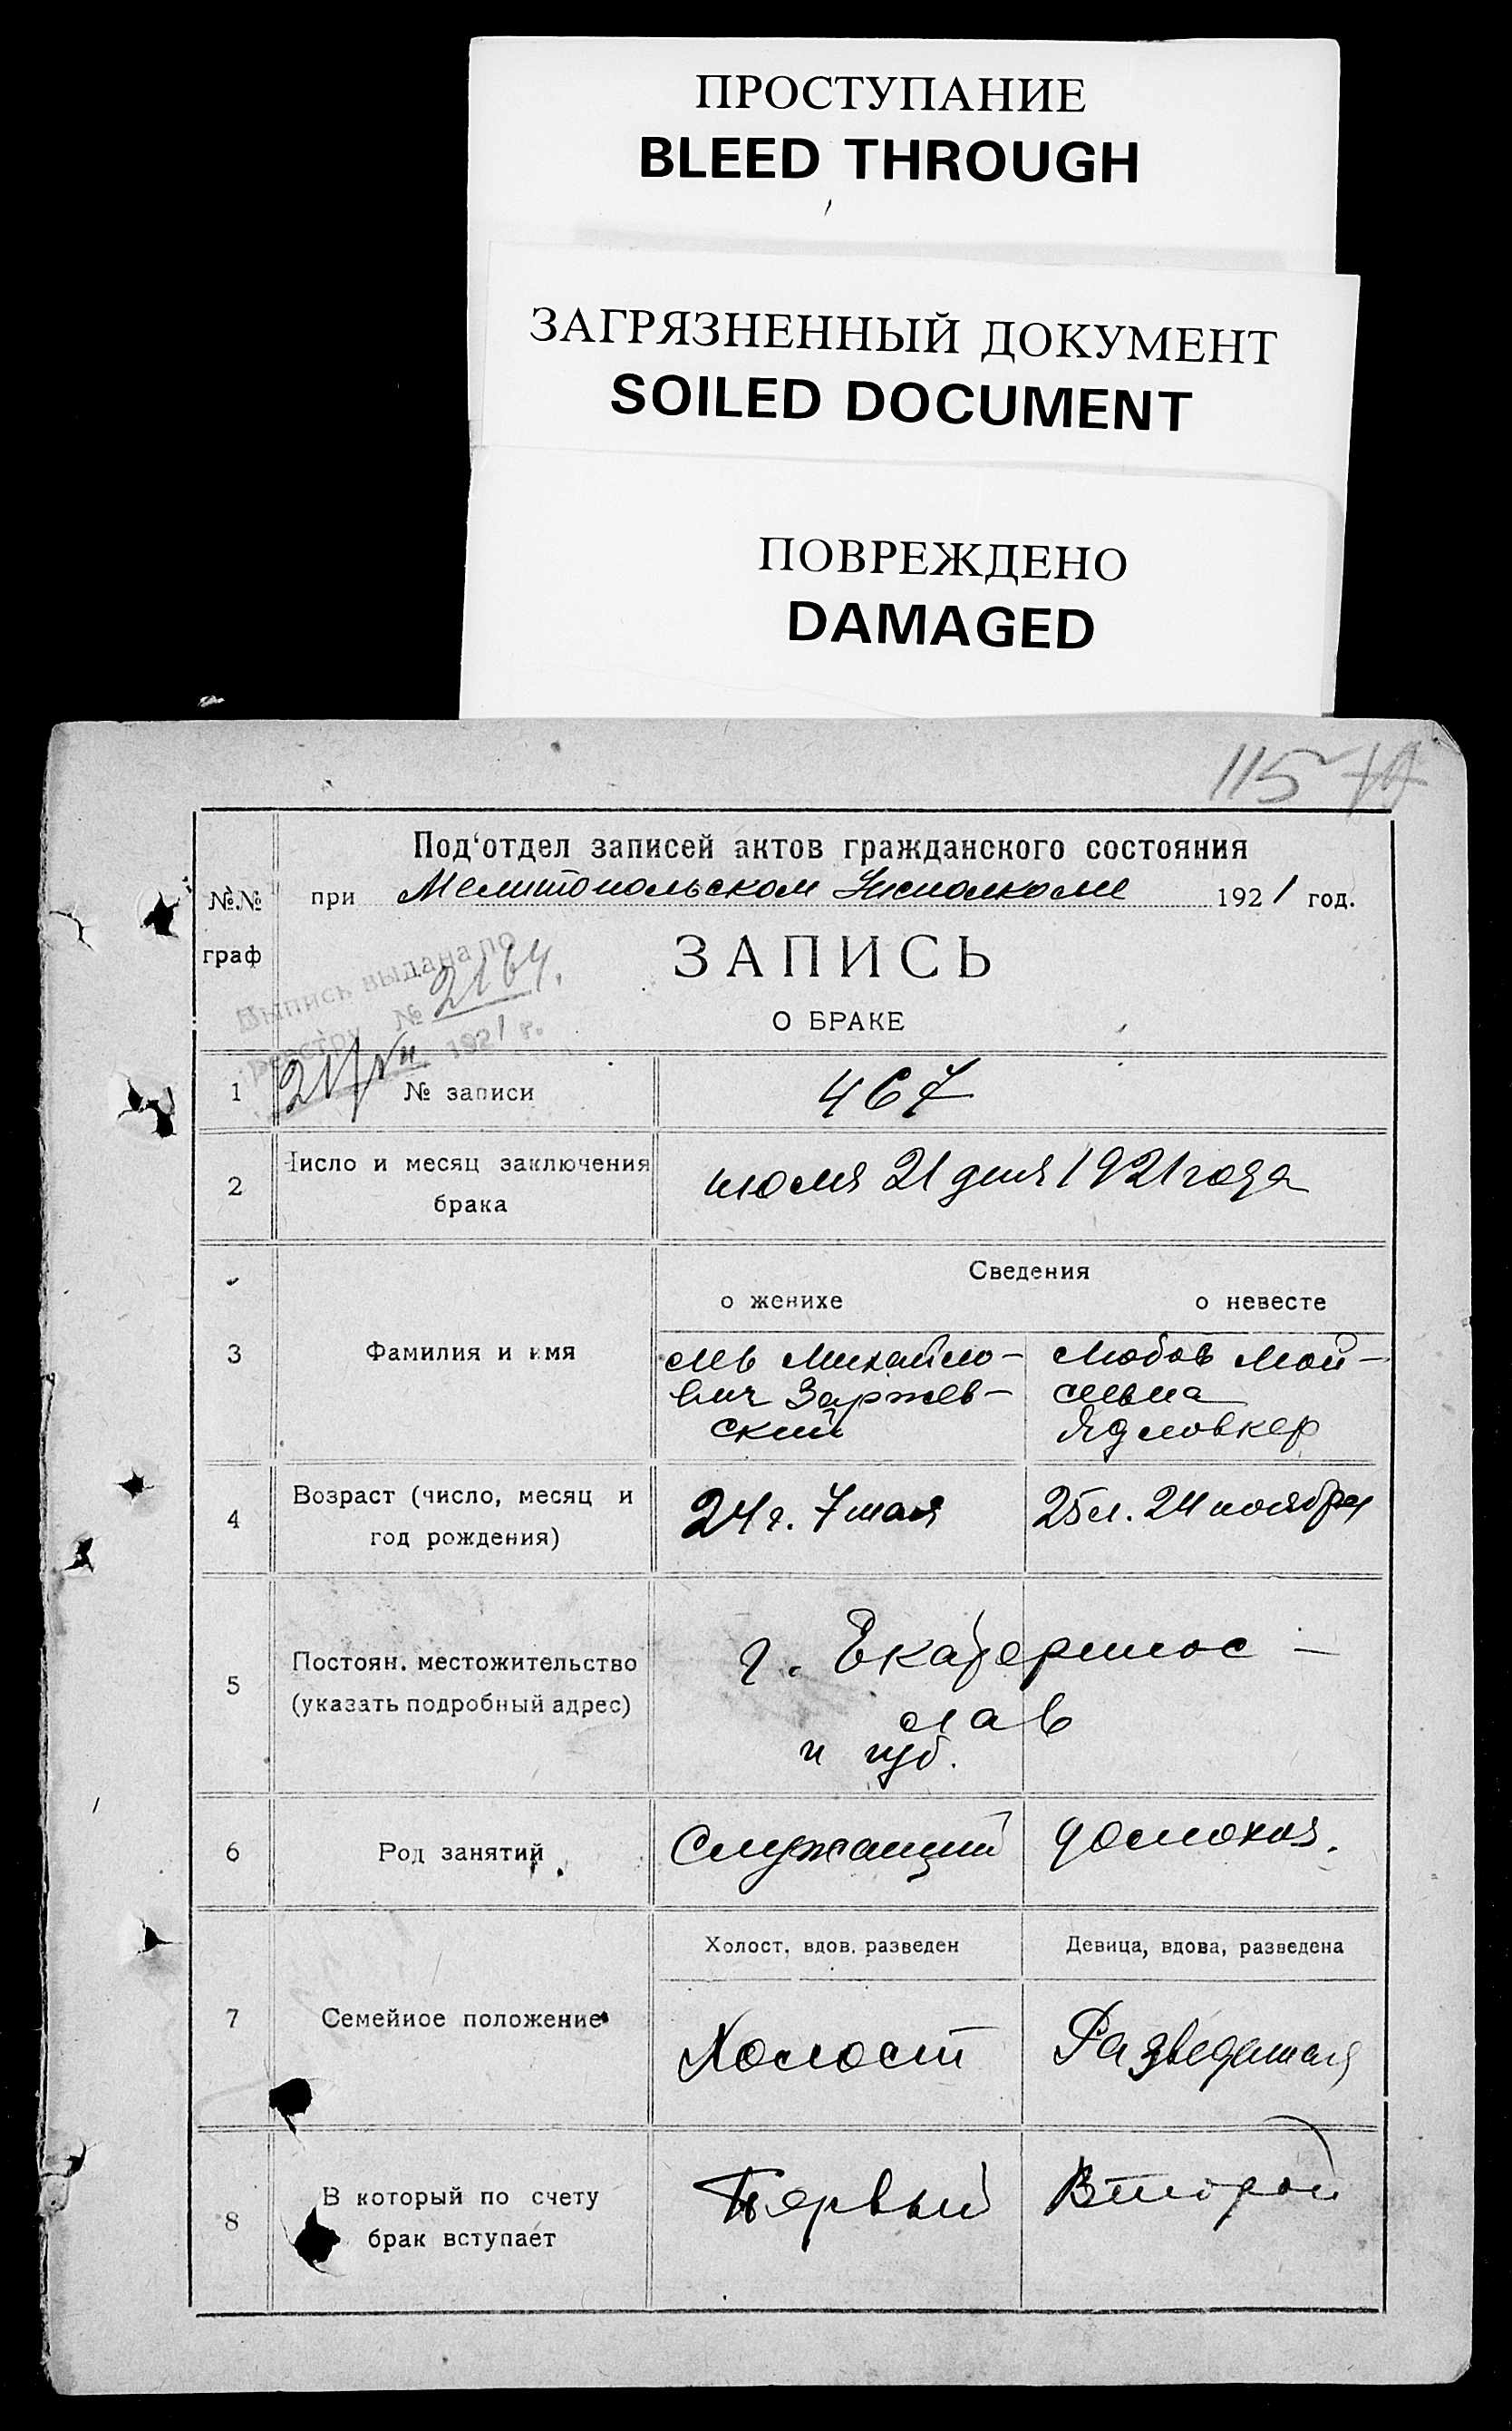 ПРОСТУПАНИЕ
BLEED THROUGH
ЗАГРЯЗНЕННЫЙ ДОКУМЕНТ
SOILED DOCUMENT
ПОВРЕЖДЕНО
DAMAGED
115
Под'отдел записей актов гражданского состояния
№.№ граф
при Мелитопольском Исполкоме 1921 год.
ЗАПИСЬ
О БРАКЕ
Выпись выдана по
реестру № 2164.
21/VII 1921 г.
1 № записи 467
2 Число и месяц заключения
брака
июля 21 дня 1921 года
Сведения
о женихе о невесте
3 Фамилия и имя
Лев Михайло-
вич Заржев-
ский
Любовь Мои-
сеевна
Ядловкер
4 Возраст (число, месяц и
год рождения)
24 г. 7 мая 25 л. 24 ноября
5 Постоян. местожительство
(указать подробный адрес)
г. Екатеринос-
лав
и губ.
6 Род занятий Служащий домохоз.
Холост, вдов, разведен Девица, вдова, разведена
7 Семейное положение Холост Разведенная
8 В который по счету
брак вступает
Первый Второй